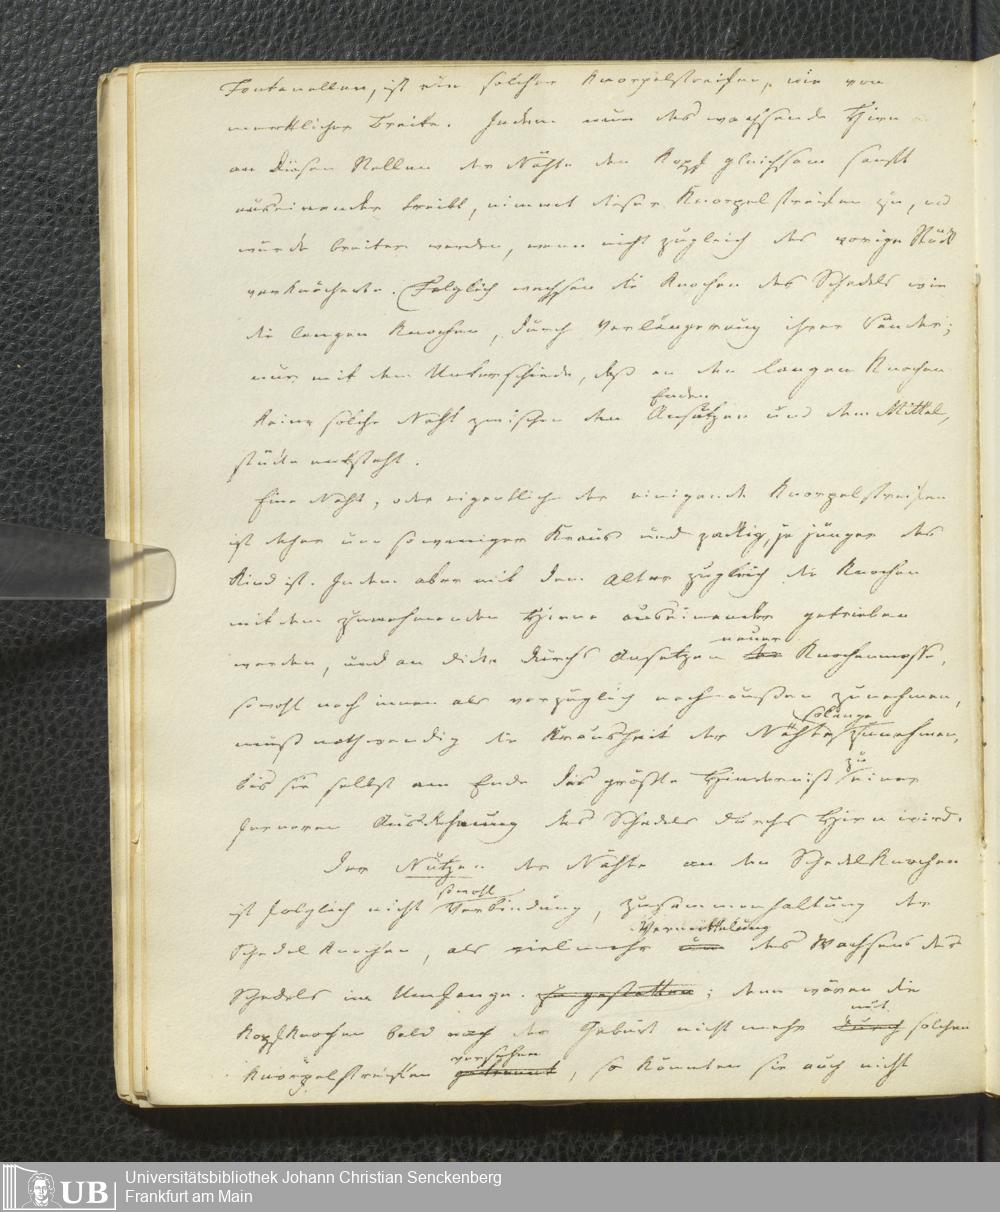 Fontanellen, ist ein solcher Knorpelstreifen, wie von
merklicher Breite. Indem nun das wachsende Hirn
an diesen Stellen der Nähte den Kopf gleichsam sanft
auseinander treibt, nimmt dieser Knorpelstreifen zu, und
würde breiter werden, wenn nicht zugleich das vorige Stück
verknöcherte. Folglich wachsen die Knochen des Schedels wie
die langen Knochen, durch Verlängerung ihrer Ränder;
nur mit dem Unterschiede, daß an den langen Knochen
keine solche Naht zwischen den Ansätzen Enden und dem Mittel,
stücke entsteht.
Eine Naht, oder eigentlich der einigende Knorpelstreifen
ist daher um so weniger kraus und zackig, je jünger das
Kind ist. Indem aber mit dem Alter zugleich die Knochen
mit dem zunehmenden Hirne auseinander getrieben
werden, und an dicke durchs Ansetzen neuer Knochenmasse,
sowohl nach innen als vorzüglich nach außen zunehmen,
muß nothwendig die Krausheit der Nähte solange zunehmen,
bis sie selbst am Ende das größte Hinderniß zu einer
ferneren Ausdehnung des Schedels durchs Hirn wird.
Der Nutzen der Nähte an den Schedelknochen
ist folglich nicht sowohl Verbindung, Zusammenhaltung der
Schedelknochen, als vielmehr um Vermittelung des Wachsens des
Schedels im Umfange. zu gestatten; denn wären die
Kopfknochen bald nach der Geburt nicht mehr durch mit solchen
Knorpelstreifen getrennt versehen, so könnten sie auch nicht
UB
Universitätsbibliothek Johann Christian Senckenberg
Frankfurt am Main